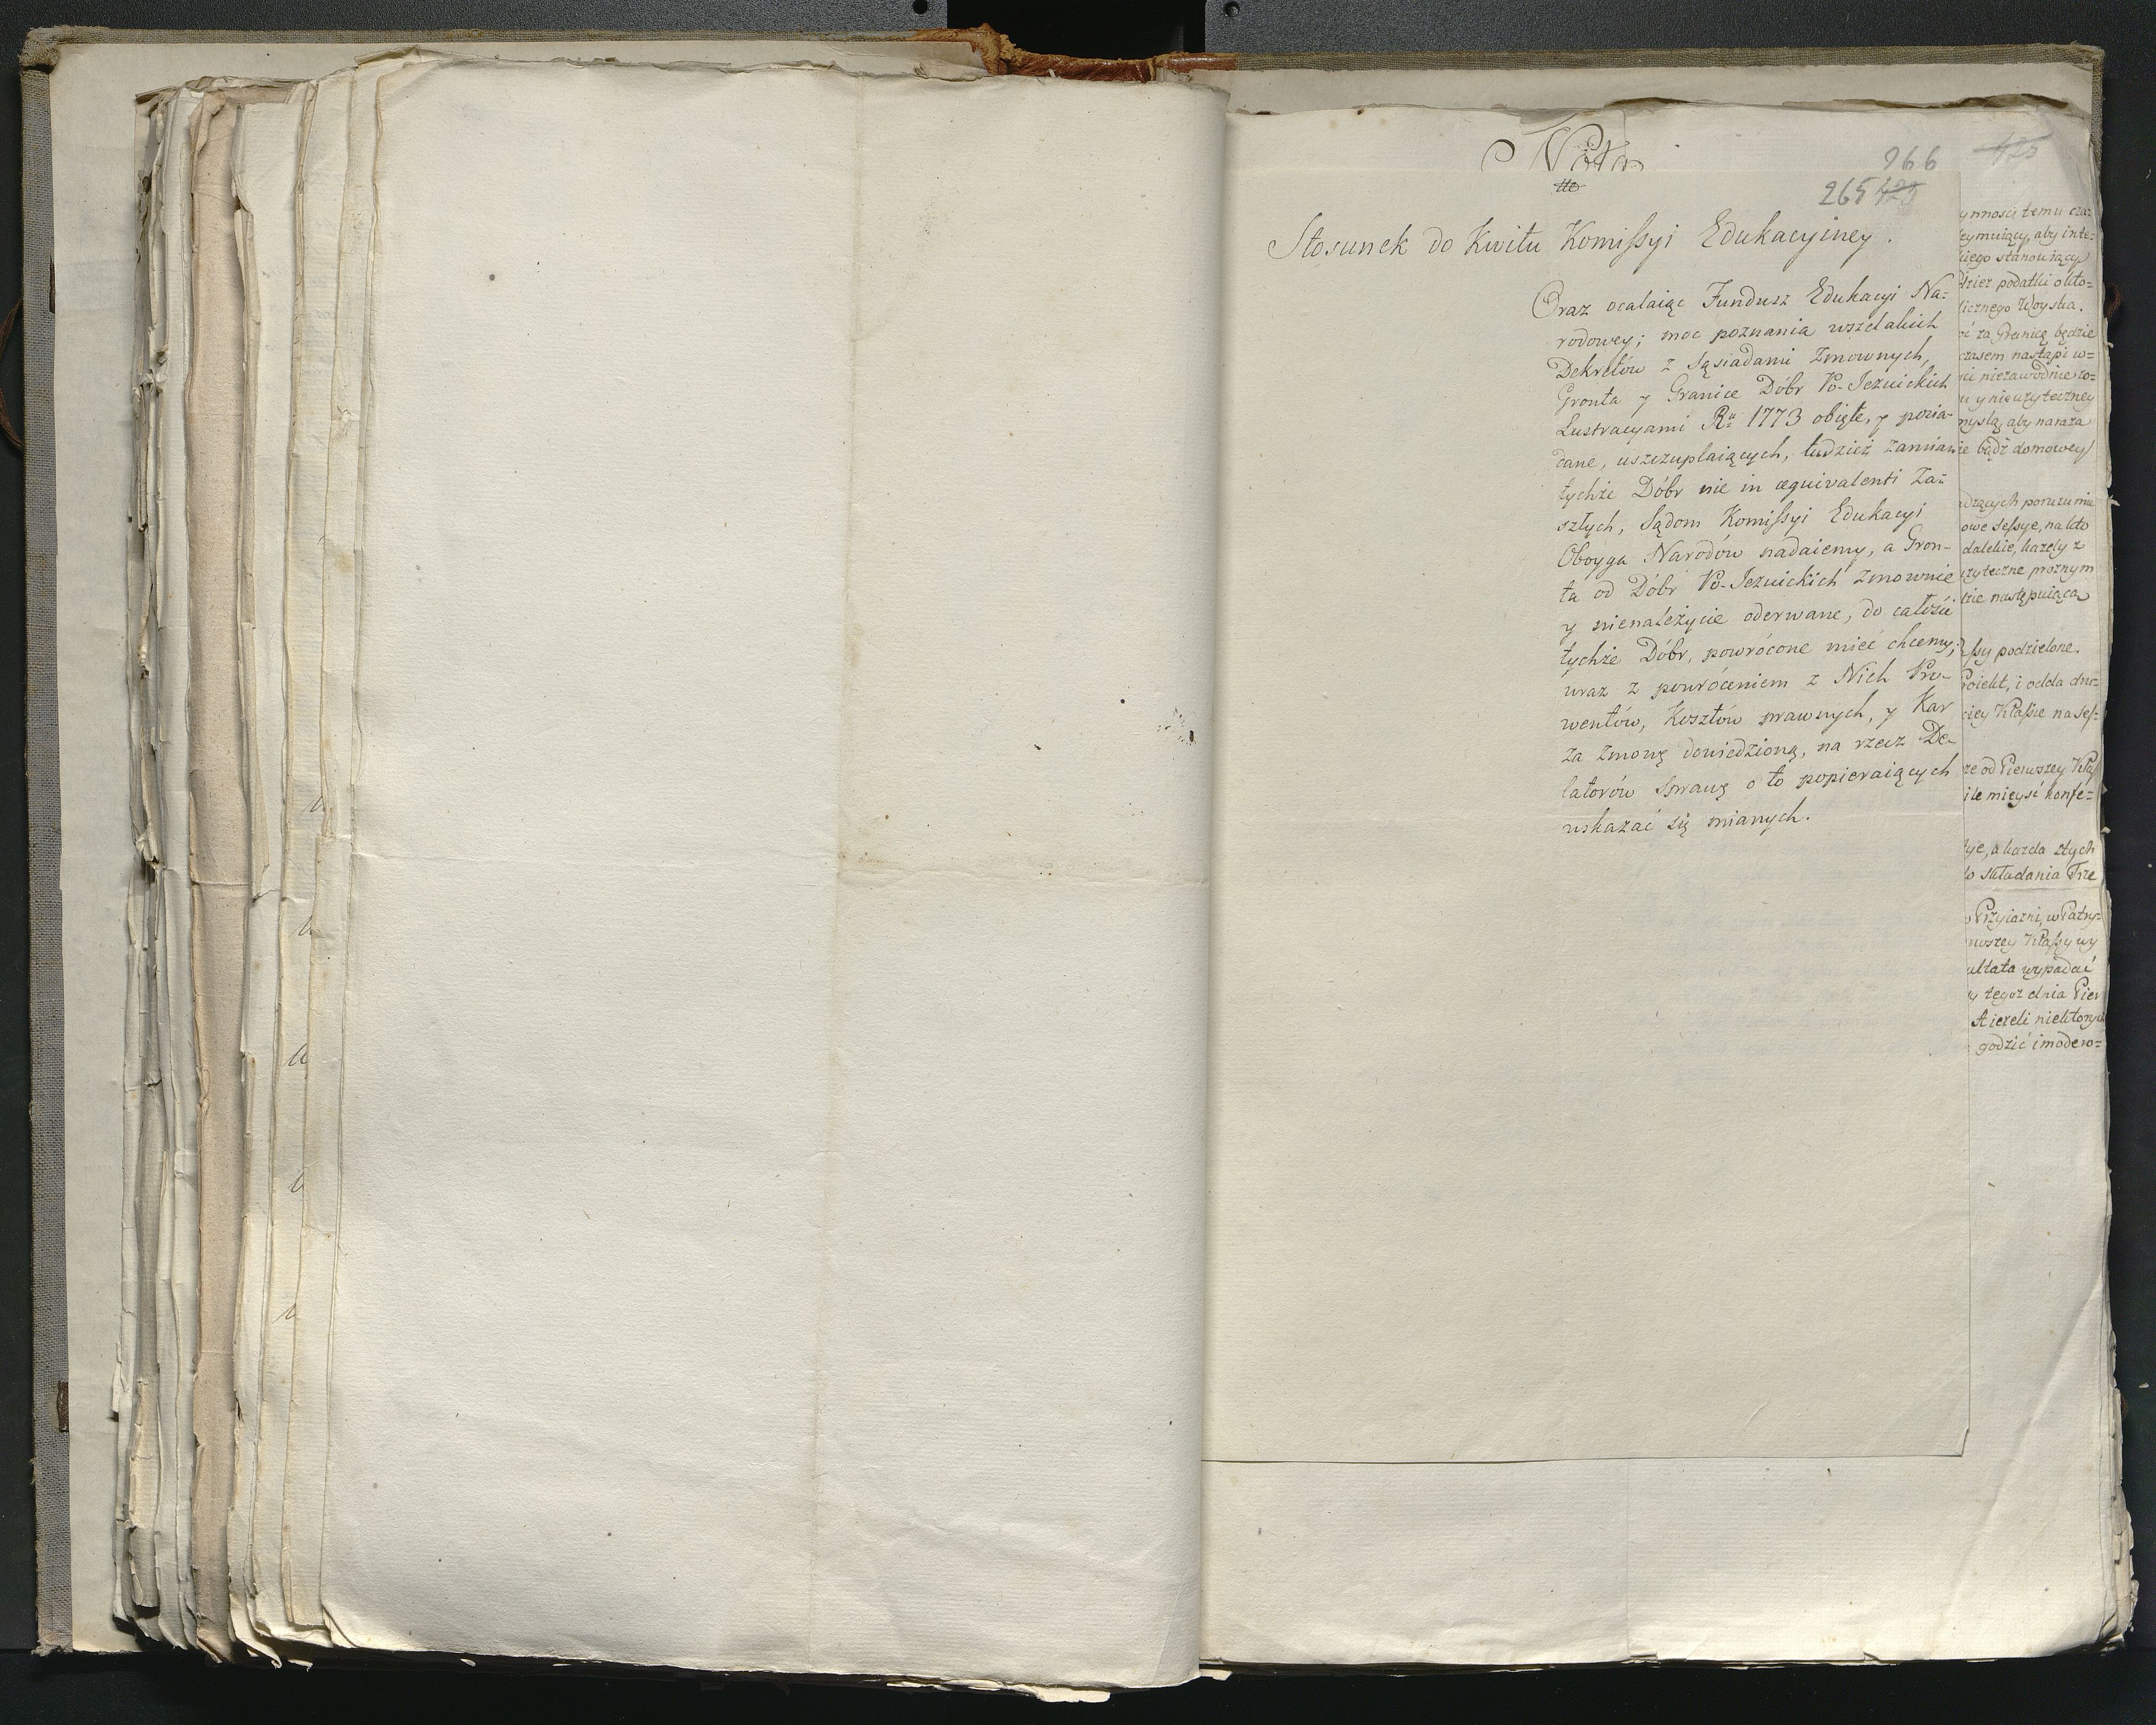 Nota
266 425
265 425
Stosunek do Kwitu Komißyi Edukacyiney.
Oraz ocalaiąc Fundusz Edukacyi Na=
rodowey; moc poznania wszelakich
Dekretów z Sąsiadami Zmownych,
Gronta y Granice Dóbr Po-Jezuickich
Lustracyami Ru 1773 obięte, y posia-
dane, uszczuplaiących, tudzież zamian
tychże Dóbr nie in æquivalenti Za=
szłych, Sądom Komißyi Edukacyi
Oboyga Narodów nadaiemy, a Gron-
ta od Dóbr Po-Jezuickich zmownie
y nienależycie oderwane, do całości
tychże Dóbr, powrócone mieć chcemy;
wraz z powróceniem z Nich Pro-
wentów, Kosztów prawnych, y Kar
za zmowę dowiedzioną, na rzecz De-
latorów Sprawę o to popieraiących
wskazać się mianych.
ynności temu oraz
eymuiący, aby inte=
iego stanowiący
dzież podatki okto=
licznego Woyska.
ść za Granicę będzie
czasem nastąpi w=
niezawodnie zo=
u y nieużyteczney
myślą, aby naraża
ie bądź domowey
dzących porozumie
owe seßye, na kto
dalekie, każdy z
użyteczne prożnym
dzie następuiąca
ßy podzielone.
Proiekt, i odda dru=
ciey Klaßie na seß=
że od Pierwszey Klaß
ile mieysc konfe=
ye, a każda z tych
do składania Trze
Przyiaźni, w Patry=
wszey Klaßy wy
ultata wypadać
y tegoż dnia Pier
A ieżeli niektorych
godzić i modero=